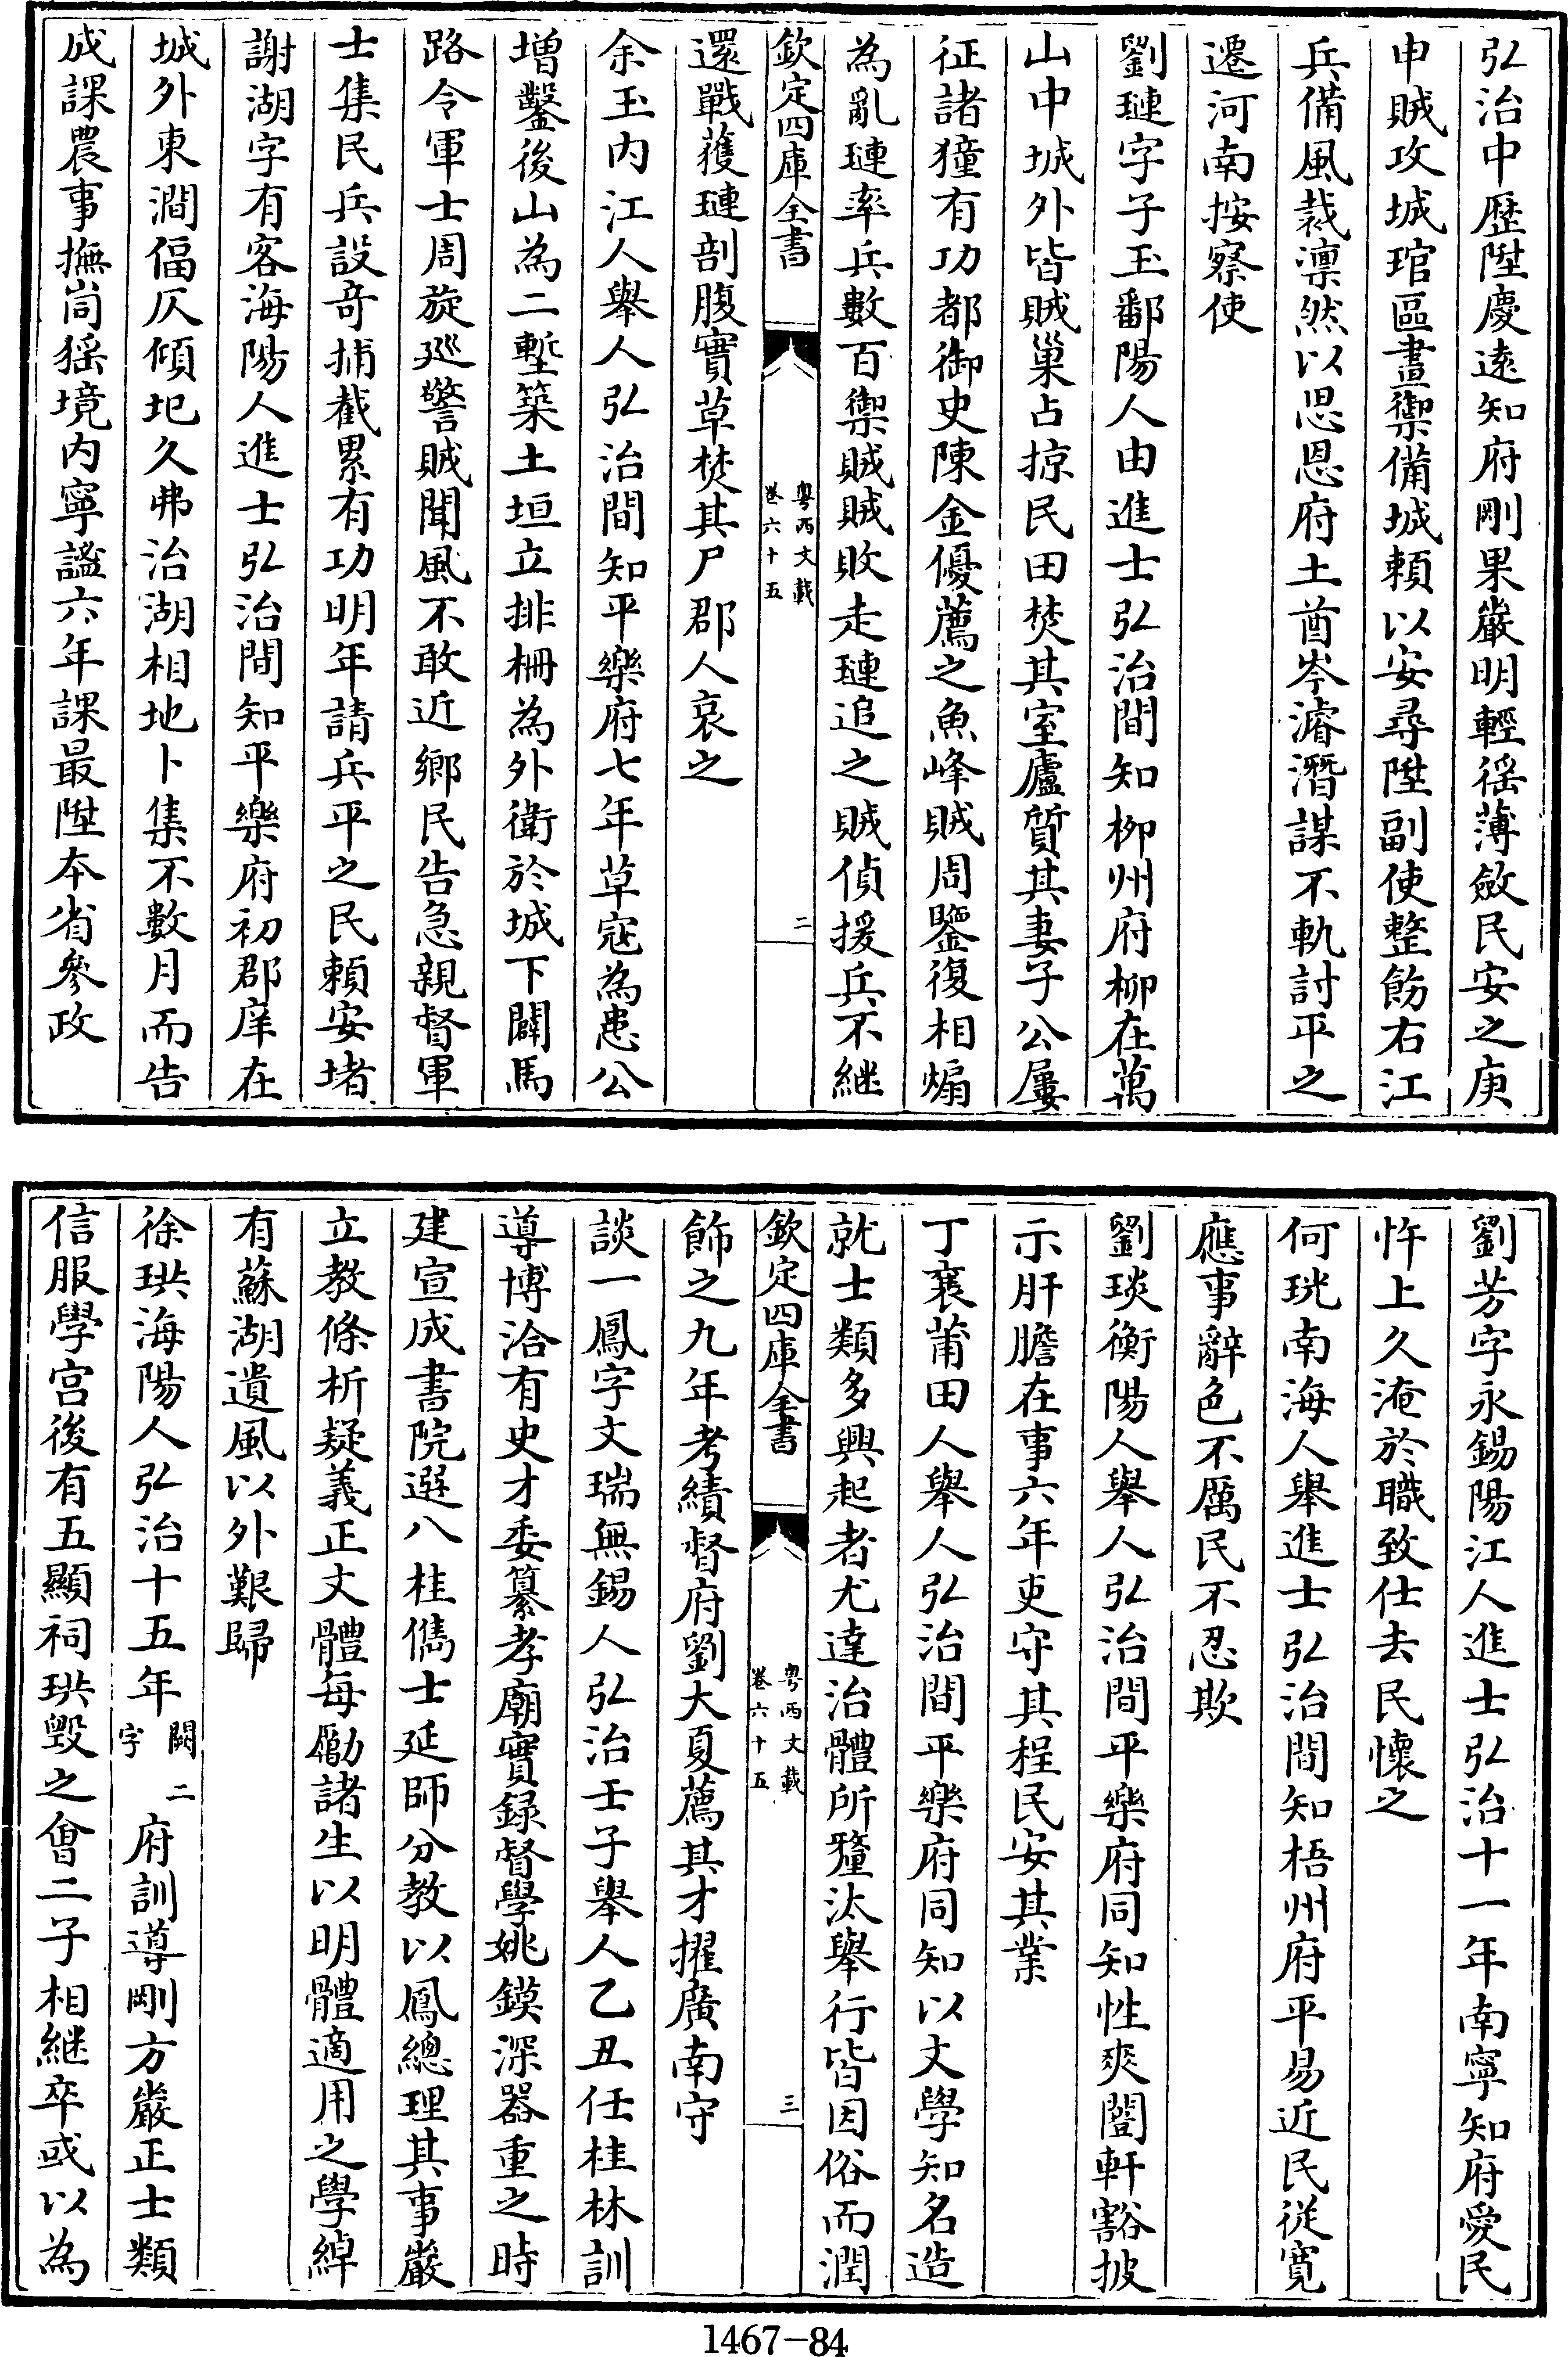 弘治中歴陞慶遠知府剛果嚴明輕徭薄斂民安之庚
申賊攻城琯區畫禦備城頼以安尋陞副使整飭右江
兵備風裁凛然以思恩府土酋岑濬潛謀不軌討平之
遷河南按察使
劉璉字子玉鄱陽人由進士弘治間知柳州府柳在萬
山中城外皆賊巢占掠民田焚其室廬質其妻子公屢
征諸獞有功都御史陳金優薦之魚峰賊周鑒復相煽
為亂璉率兵數百禦賊賊敗走璉追之賊偵援兵不継
欽定四庫全書
粤西文載
卷六十五
二
還戰獲璉剖腹實草焚其尸郡人哀之
余玉内江人舉人弘治間知平樂府七年草寇為患公
増鑿後山為二塹築土垣立排栅為外衛於城下闢馬
路令軍士周旋廵警賊聞風不敢近鄉民告急親督軍
士集民兵設竒捕截累有功明年請兵平之民頼安堵
謝湖字有容海陽人進士弘治間知平樂府初郡庠在
城外東澗偪仄傾圯久弗治湖相地卜集不數月而告
成課農事撫峝猺境内寧謐六年課最陞本省參政
劉芳字永錫陽江人進士弘治十一年南寧知府愛民
忤上久淹於職致仕去民懐之
何珖南海人舉進士弘治間知梧州府平易近民從寛
應事辭色不厲民不忍欺
劉琰衡陽人舉人弘治間平樂府同知性爽闓軒豁披
示肝膽在事六年吏守其程民安其業
丁襄莆田人舉人弘治間平樂府同知以文學知名造
就士類多興起者尤達治體所釐汰舉行皆因俗而潤
欽定四庫全書
粤西文載
卷六十五
三
飾之九年考績督府劉大夏薦其才擢廣南守
談一鳳字文瑞無錫人弘治壬子舉人乙丑任桂林訓
導博洽有史才委纂孝廟實録督學姚鏌深器重之時
建宣成書院選八桂儁士延師分教以鳳總理其事嚴
立教條析疑義正文體每勵諸生以明體適用之學綽
有蘇湖遺風以外艱歸
徐珙海陽人弘治十五年闕二字府訓導剛方嚴正士類
信服學宫後有五顯祠珙毁之會二子相継卒或以為
1467-84